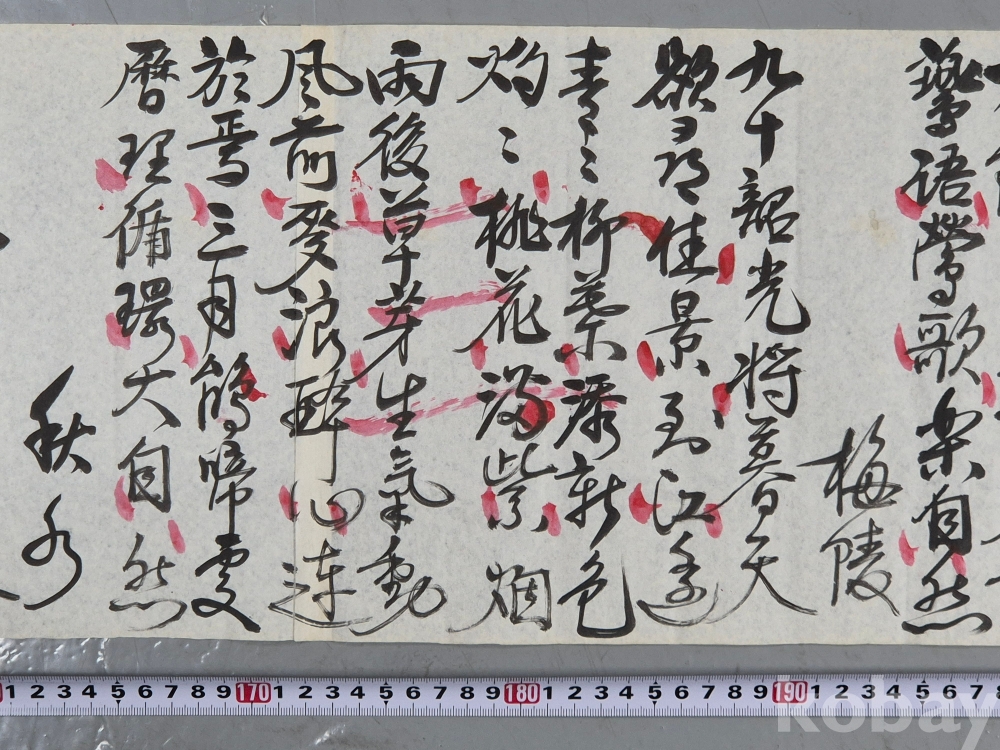 語鶯歌樂自然
梅陵
九十韶光将暮天
欲尋佳景到江邊
青々柳葉添新色
灼々桃花満紫烟
雨後草芽生氣動
風前麦浪酔心連
於焉三月鵑啼處
暦理循環大自然
秋水
1 2 3 4 5 6 7 8 9 170 1 2 3 4 5 6 7 8 9 180 1 2 3 4 5 6 7 8 9 190 1 2 3 4 5 6 7
kobay